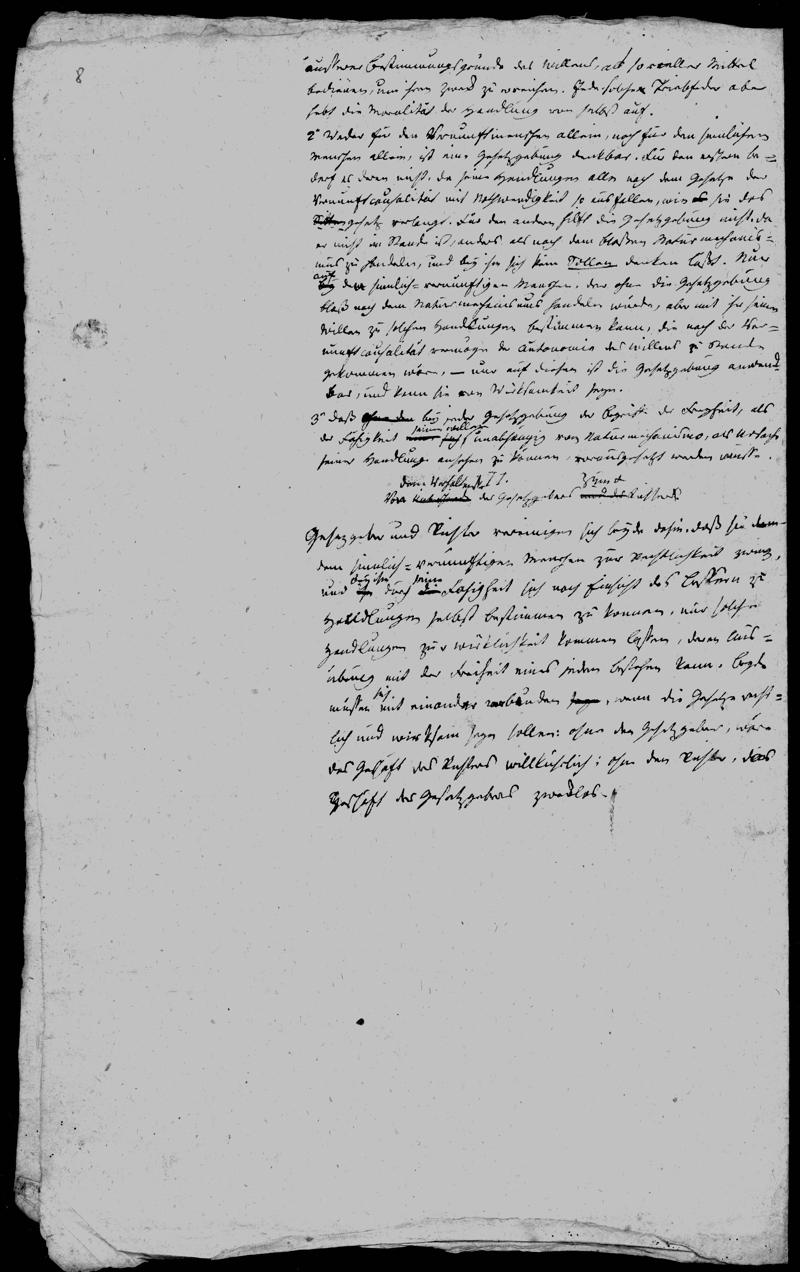 8
äusserer Bestimmungsgründe des Willens, als soviellen Mittel
bedienen, um ihren Zweck zu erreichen. Jede solche Triebfeder aber
hebt die Moralität der Handlung von selbst auf.
2° Weder für den Vernunftmenschen allein, noch für den sinnlichen
Menschen allein, ist eine Gesetzgebung denkbar. Für den erstern be=
darf es deren nicht, da seine Handlungen alle nach dem Gesetze der
Vernunftcausalität mit Nothwendigkeit so ausfallen, wie es sie das
Sittengesetz verlangt. Für den andern hilft die Gesetzgebung nicht, da
er nicht im Stande ist, anders als nach dem bloßen Naturmechanis=
mus zu handeln, und bey ihm sich kein Sollen denken läßt. Nur
auf
bey den sinnlich=vernünftigen Menschen, der ohne die Gesetzgebung
bloß nach dem Naturmechanismus handeln würde, aber mit ihr seinen
Willen zu solchen Handlungen bestimmen kann, die nach der Ver=
nunftcausalität vermöge der Autonomie des Willens zu Stande
gekommen wären, — nur auf diesen ist die Gesetzgebung anwend
bar, und kann sie von Wirksamkeit seyn.
3° daß ohne den bey jeder Gesetzgebung der Begriff der Freyheit, als
seinen Willen
der Fähigkeit sich unabhängig vom Naturmechanismo, als Ursache
seiner Handlung ansehen zu können, vorausgesetzt werden müsse.
II.
dem Verhältniße zum
Von der Gesetzgebers und des Richters
Gesetzgeber und Richter vereinigen sich beyde dahin, daß sie dem
dem sinnlich=vernünftigen Menschen zur Rechtlichkeit zwingen,
bey ihm seine
und ihn durch die Fähigkeit sich nach Einsicht des Bessern zu
Handlungen selbst bestimmen zu können, nur solche
Handlungen zur Wirklichkeit kommen lassen, deren Aus=
übung mit der Freiheit eines jeden bestehen kann. Beyde
sich
müssen mit einander verbunden seyn, wenn die Gesetze recht=
lich und wirksam seyn sollen: ohne den Gesetzgeber, wäre
das Geschäft des Richters willkührlich; ohne den Richter, das
Geschäft des Gesetzgebers zwecklos.